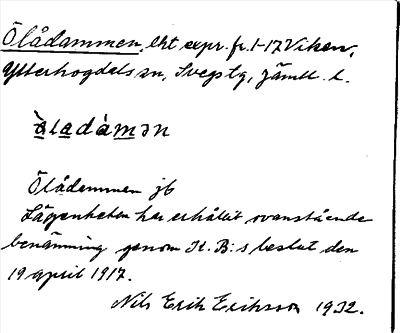 Ölådammen, lht expr. fr. 1-17 Viken,
Ytterhogdals sn, Svegs tg, Jämtl. l.
òladàmən
Ölådammen jb
Lägenheten har erhållit ovanstående
benämning genom K. B:s beslut den
19 april 1917.
Nils Erik Eriksson 1932.